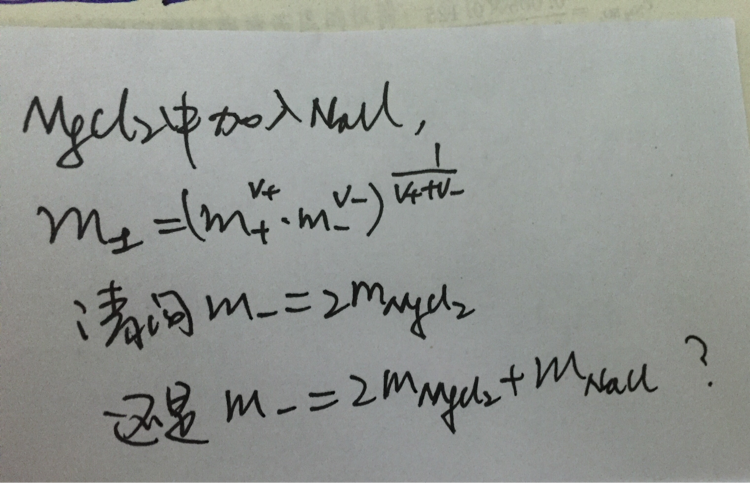 MgCl₂中加入NaCl,
m± = (m₊^ν₊ · m₋^ν₋)^(1/(ν₊+ν₋))
请问 m₋ = 2m_MgCl₂
还是 m₋ = 2m_MgCl₂ + m_NaCl ?